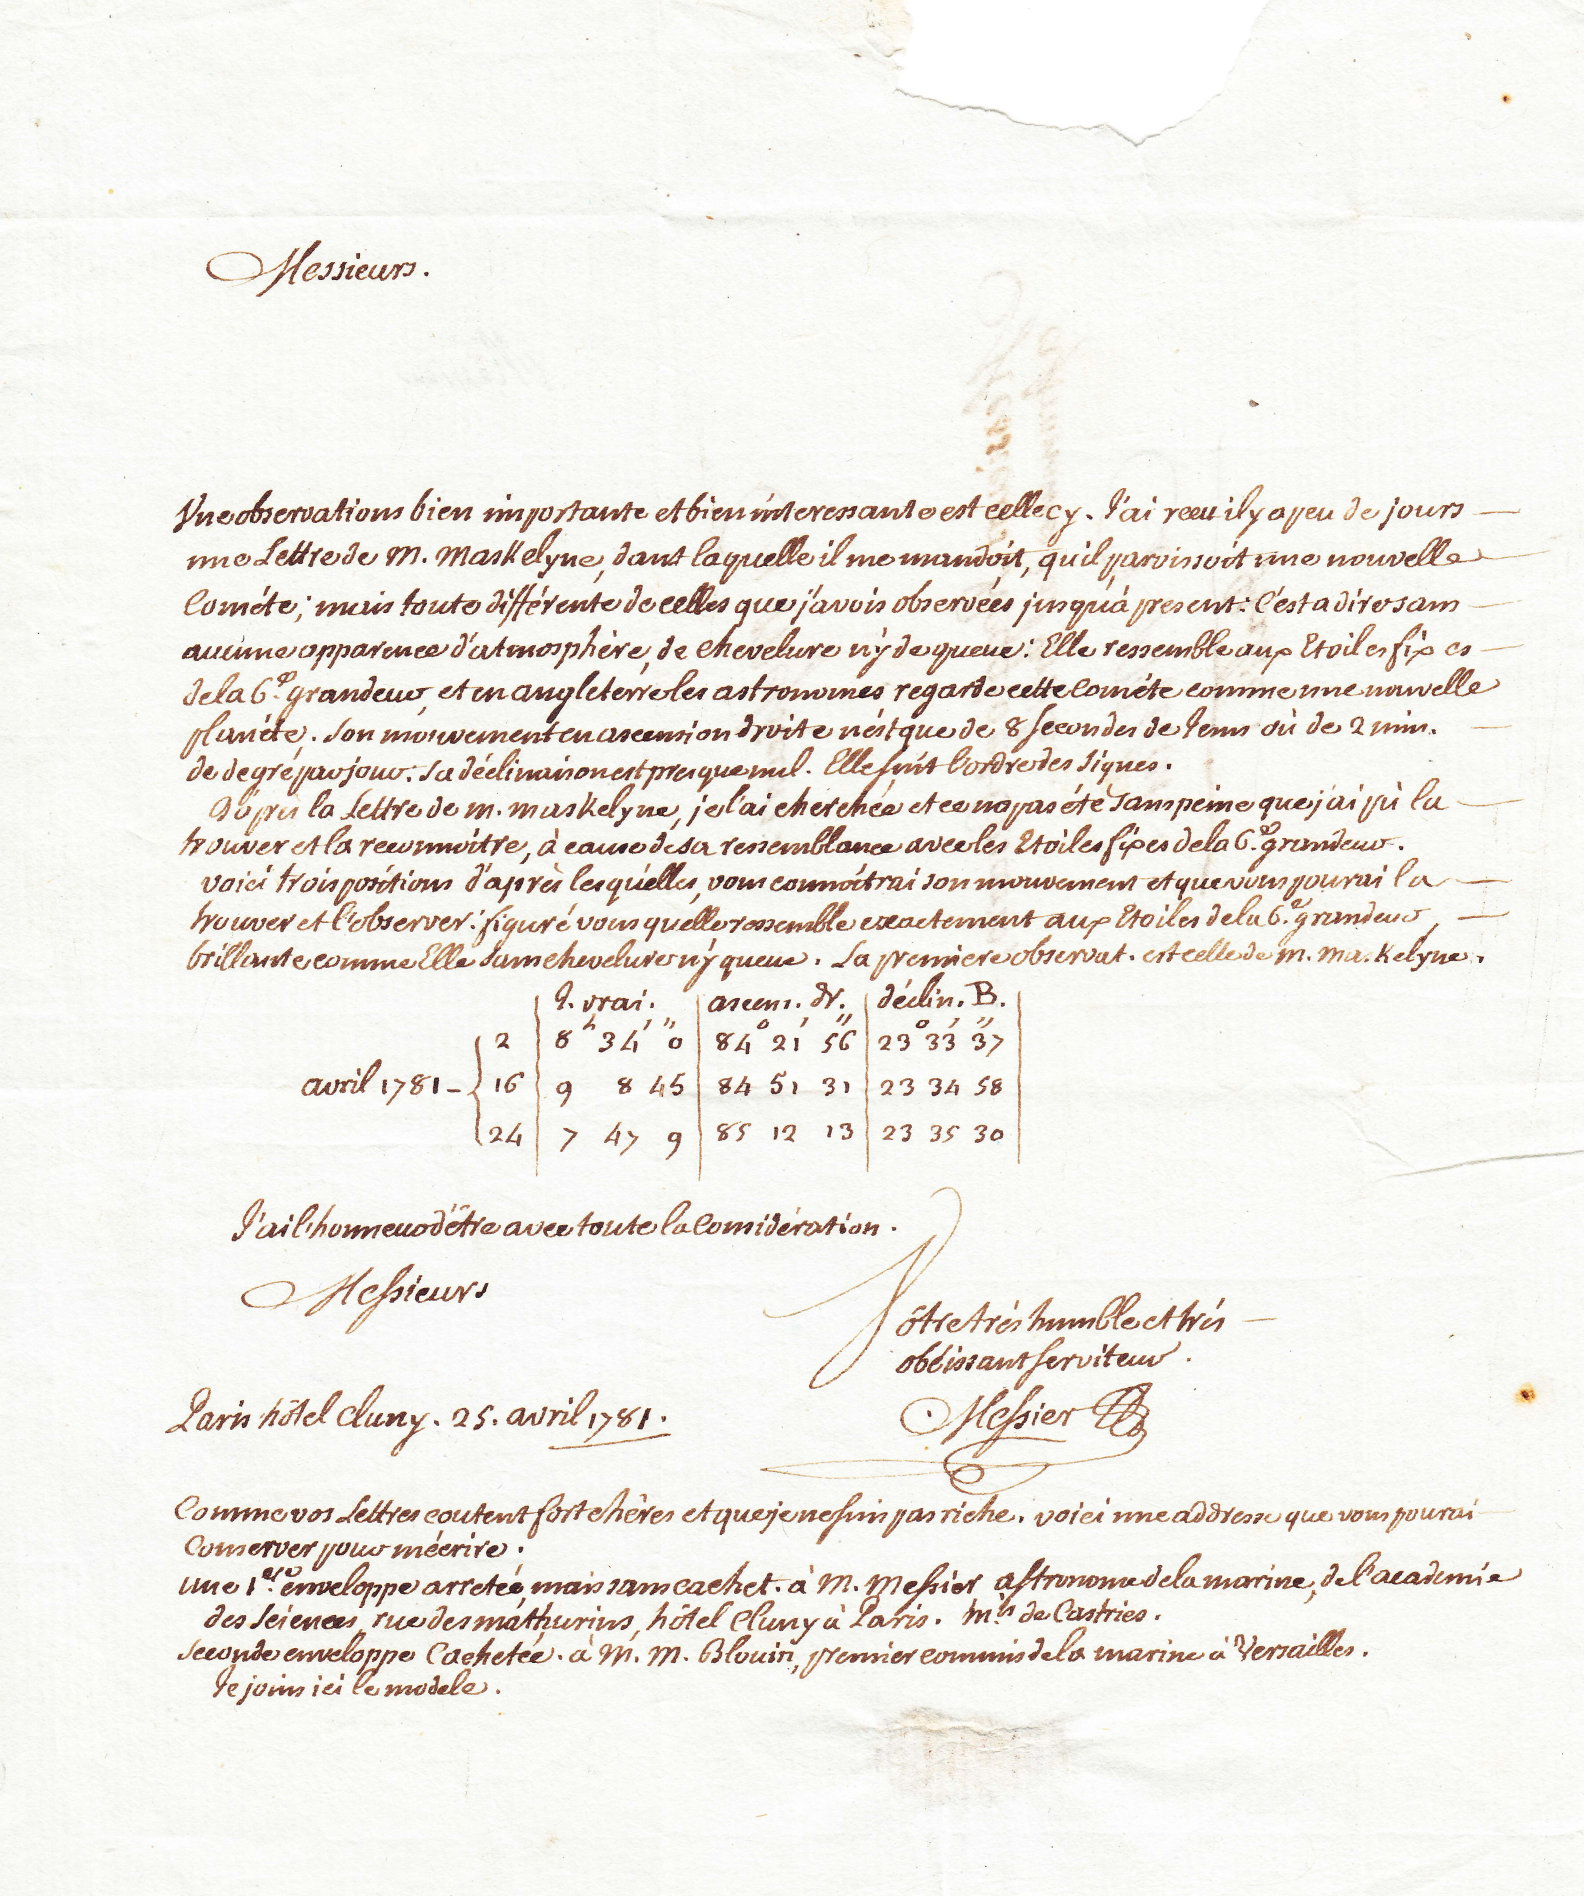 Messieurs.
Une observations bien importante et bien interessante est celle cy. J'ai reçu il y a peu de jours
une Lettre de M. Maskelyne, dans laquelle il me mandoit, qu'il paroissoit une nouvelle
Cométe; mais toute différente de celles que j'avois observées jusqu'à present: C'est a dire sans
aucune apparence d'atmosphère, de chevelure n'y de queue: Elle ressemble aux Etoiles fixes
de la 6.e grandeur, et en angleterre les astronomes regarde cette Cométe comme une nouvelle
planéte. Son mouvement en ascension droite n'ést que de 8 Secondes de tems où de 2 min.
de degré par jour. Sa déclinaison est presque nul. Elle suit l'ordre des signes.
D'après la Lettre de m. maskelyne, je l'ai cherchée et ce n'a pas été sans peine que j'ai pù la
trouver et la reconnoitre, à cause de sa ressemblance avec les Etoiles fixes de la 6.e grandeur.
Voici trois positions d'après lesquelles, vous connoitrai son mouvement et que vous pourai la
trouver et l'observer: figuré vous quelle ressemble exactement aux Etoiles de la 6.e grandeur,
brillante comme Elle sans chevelure n'y queue. La premiere observat. est celle de m. maskelyne.
t. vrai. ascens. dr. déclin. B.
2 8h 34' 0" 84° 21' 56" 23° 33' 37"
avril 1781 - 16 9 8 45 84 51 31 23 34 58
24 7 47 9 85 12 13 23 35 30
J'ai l'honneur d'être avec toute la Considération.
Messieurs
Vôtre trés humble et trés
obéissant Serviteur.
Messier
Paris hôtel Cluny. 25. avril 1781.
Comme vos Lettres coutent fort chères et que je ne suis pas riche. voici une addresse que vous pourai
Conserver pour m'écrire.
une 1.ere enveloppe arretée, mais sans cachet. à M. Messier astronome de la marine, de l'academie
des Sciences, rue des mathurins, hôtel Cluny à Paris. m.is de Castries.
Seconde enveloppe Cachetée. à M. M. Blouin, premier commis de la marine à Versailles.
Je joins ici le modele.